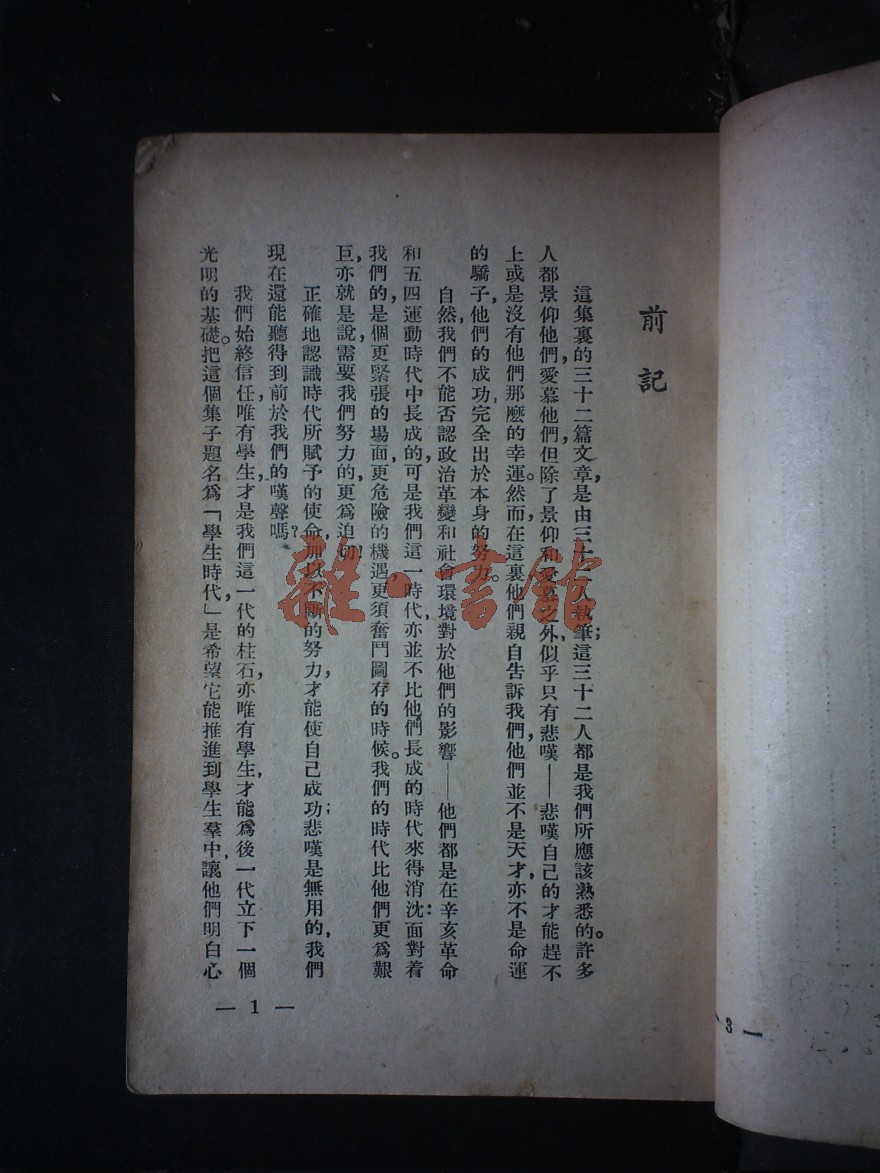 前記
這集裏的三十二篇文章，是由三十二人執筆；這三十二人都是我們所應該熟悉的。許多
人都景仰他們，愛慕他們，但除了景仰和愛慕之外，似乎只有悲嘆——悲嘆自己的才能趕不
上或是沒有他們那麼的幸運。然而在這裏他們親自告訴我們，他們並不是天才，亦不是命運
的驕子，他們的成功完全出於本身的努力。
自然，我們不能否認政治革變和社會環境對於他們的影響——他們都是在辛亥革命
和五四運動時代中長成的，可是我們這一時代，亦並不比他們長成的時代來得消沈：面對着
我們的，是個更緊張的場面，更危險的機遇，更須奮鬥圖存的時候。我們的時代比他們更爲艱
巨，亦就是說，需要我們努力的，更爲迫切！
正確地認識時代所賦予的使命，加以不斷的努力，才能使自己成功；悲嘆是無用的，我們
現在還能聽得到前於我們的嘆聲嗎？
我們始終信任，唯有學生，才是我們這一代的柱石，亦唯有學生，才能爲後一代立下一個
光明的基礎。把這個集子題名爲「學生時代」，是希望它能推進到學生羣中，讓他們明白心
— 1 —
3 —
雜·書館